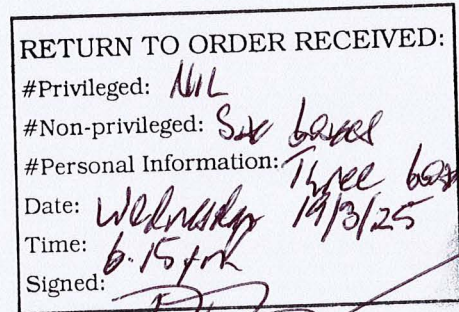 RETURN TO ORDER RECEIVED:
#Privileged: NIL
#Non-privileged: Six boxes
#Personal Information: Three boxes
Date: Wednesday 19/3/25
Time: 6.15pm
Signed: